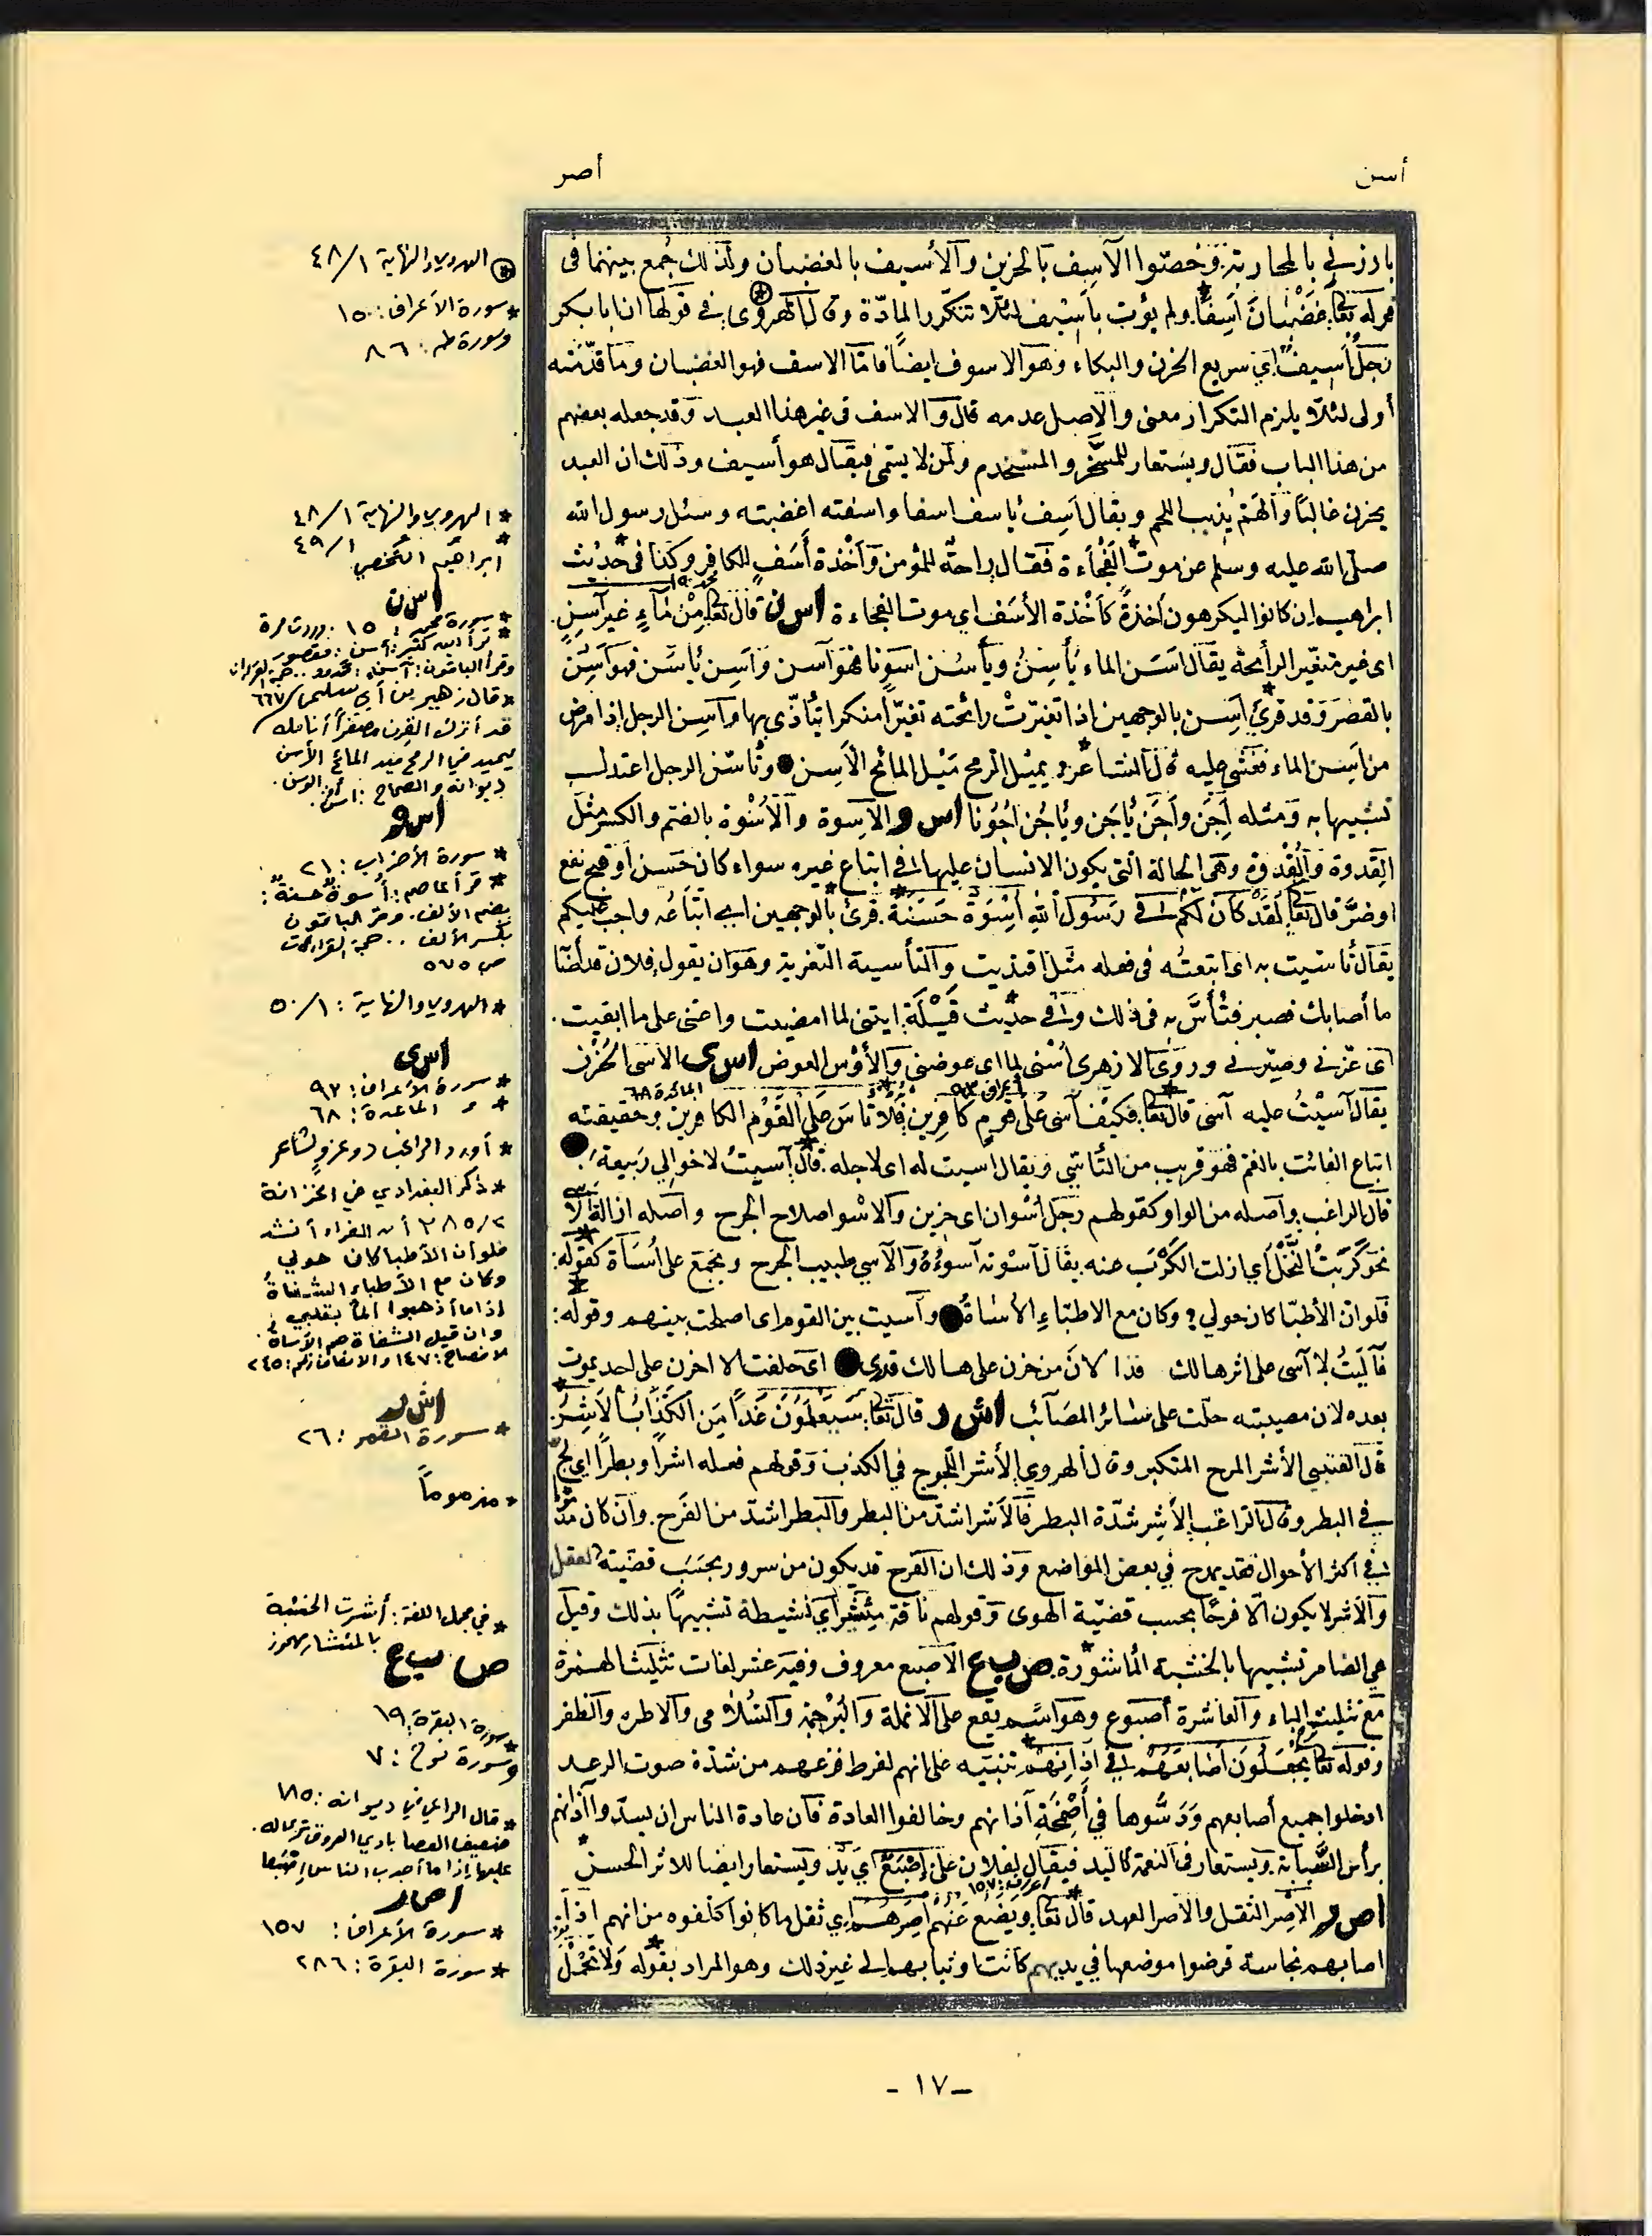 أسن
أصر
بارزني بالمحاربة. وخصّوا الآسِف بالحزين والأسيف بالغضبان ولذلك جُمع بينهما في
قوله تعالى غَضْبَانَ أَسِفًا. ولم يؤت بأسيف لئلا تتكرر المادّة وقال الهروي في قولها ان ابا بكر
رجلٌ أسِيفٌ اي سريع الحزن والبكاء وهو الاسوف ايضًا فامّا الاسف فهو الغضبان وما قدّمته
أولى لئلا يلزم التكرار معنى والاصل عدمه قال والاسف في غير هذا العبد وقد جعله بعضهم
من هذا الباب فقال ويستعار للمسخَّر والمستخدم ولمن لا يسمّى فيقال هو أسيف وذلك ان العبد
يحزن غالبًا والهَمّ يُذيب اللحم ويقال اَسِف يأسف اسفا واسفته اغضبته وسئل رسول الله
صلى الله عليه وسلم عن موت الفُجْأة فقال راحةٌ للمؤمن وَأخْذة أَسَفٍ للكافر وكذا في حديث
ابراهيم ان كانوا ليكرهون أخذةً كأخْذة الأسَف اي موت الفجاءة اس ن قال تعالى مِنْ مَاءٍ غيرِ آسِنٍ.
اى غير متغيّر الرائحة يقال اَسَن الماء يأسِنُ ويأسُن اسَوِنا فهو آسن وَاَسِن يأسَن فهو اَسِنٌ
بالقصر وقد قرئ اَسِن بالوجهين اذا تغيّرتْ رائحته تغيّرًا منكرا يُتأذّى بها واَسِن الرجل إذا مرض
من اَسِن الماء فغشى عليه قال الشاعر: يميل الرمح مَيْل المائح الأسِن وتأسّن الرجل اعتدلـ
تشبيها به ومثله اَجِن واَجَن يأجَن ويأجُن اجُوْنا اس و الإسوة والأُسْوة بالضم والكسر مثل
القِدوة والقُدوة وهي الحالة التي يكون الانسان عليها في اتباع غيره سواء كان حَسَن أو قبح نفع
اوضرّ قال تعالى لَقَدْ كَانَ لَكُمْ فِي رَسُولِ اللهِ اُسْوَةٌ حَسَنَةٌ. قرئ بالوجهين اي اتبَاعُه واجب عليكم
يقال تأسّيت به اى اتبعتُه في فعله مثل اقتديت والتأسية التعزية وهو ان يقول فلان قد أصابه
ما أصابك فصبر فتأسَّ به في ذلك وفي حديث قَيْلَة: ايتنى لما امضيت واعنى على ما ابقيت.
اى عزّني وصبّرني وروى الازهرى اُسْنى لما اى عوضنى والأوْس العوض اس ى الاسى الحُزْن
يقال اَسَيْتُ عليه آسى قال تعالى فكيْفَ آسَى عَلَى قَوْمٍ كافِرِين فَلَا تَأسَ عَلَى القَوْمِ الكافرين وحقيقته
اتباع الفائت بالغم فهو قريب من التأسّي ويقال اسيت له اى لاجله. قال: اسيتُ لاخوالي رَبيعة.
قال الراغب. واصله من الواو كقولهم رجل أسْوان اى حزين والاسْو اصلاح الجرح واصله ازالة الأسى
نحو كَرَبْتُ النَّخْل أي ازلت الكَرْبَ عنه يقال أسَوْته آسوُهُ والآسي طبيب الجرح ويجمع على اُسَاة كقوله:
فلو ان الأطبّا كان حولي؛ وكان مع الاطبّاءِ الأساةُ وآسيت بين القوم اى اصلحت بينهم وقوله:
فآليتُ لا آسى على اثر هالك قدى لانَ من حزن على هالك قدى اى حلفت لا احزن على احد يموت
بعده لان مصيبته حلّت على سائر المصائب اش ر قال تعالى: سَيَعْلَمُوْنَ غَداً مَنِ الكَذَّابُ الأَشِرُ.
قال القتبي الأشر المرح المتكبر وقال الهروي الأشر اللّجوج في الكذب وقولهم فعله اشراً وبطراً اي لجّ
في البطر وقال الراغب الأشر شدّة البطر فالاَشر اشد من البطر والبطر اشدّ من الفرَح. وان كان مذموما
في أكثر الأحوال فقد يمدح في بعض المواضع وذلك ان الفرح قد يكون من سرور بحسَب قضيّة العقل
والأشر لا يكون الّا فرحًا بحسب قضيّة الهوى وقولهم ناقة مِئشير اي نشيطة تشبيهًا بذلك وقيل
هي الضامر تشبيها بالخشبة المأشورة. ص ب ع الأصبع معروف وفيه عشر لغات تثليث الهمزة
مع تثليث الباء والعاشرة أصبوع وهو اسم يقع على الأنملة والبُرْجمة والسُّلامى والاطره والظفر
وقوله تعالى يَجْعَلُونَ اَصَابِعَهُمْ فِي آذَانِهِمْ تنبيه على انهم لفرط فزعهم من شدّة صوت الرعد
ادخلوا جميع أصابعهم ودَسُّوها في أصمِخَةِ آذانهم وخالفوا العادة فان عادة الناس ان يسدّوا آذانهم
برأس السَّبابة. ويستعار في النعمة كاليد فيقال لفلان على إصْبَعٌ اي يَدٌ ويستعار ايضا للاثر الحسن
اص ر الإصر الثقل والاصر العهد قال تعالى: ويَضَعُ عَنْهُمْ اِصْرَهُمْ اي ثقل ما كانوا كلفوه من انهم اذا
اصابهم نجاسة قرضوا موضعها في يديهم كانت او ثيابهم الى غير ذلك وهو المراد بقوله وَلَا تَحْمِلْ
* الهروي والنهاية ٤٨/١
* سورة الأعراف: ١٥٠
وسورة طه: ٨٦
* الهروي والنهاية ٤٨/١
* ابراهيم النخعي ٤٩/١
اس ن
* سورة محمد: ١٥. وردت مرة
* قرأ ابن كثير: أسن: مقصور
وقرأ الباقون: آسن: ممدود..
* قال زهير بن أبي سلمى /٦٦٧
قد أترك القرن مصفراً أنامله
يميد في الرمح ميد المائح الأسن
ديوانه والصحاح: أسن.
اس و
* سورة الأحزاب: ٢١
* قرأ عاصم: أُسوةٌ حسنة:
بضم الألف. وقرأ الباقون
بكسر الألف.. حجة القراءات
ص ٥٧٥
* الهروي والنهاية: ٥٠/١
اس ى
* سورة الأعراف: ٩٣
* " المائدة: ٦٨
* أورد الراغب دو عزو لشاعر
* ذكر البغدادي في الخزانة
٣٨٥/٢ أن الفراء أنشد
فلو أن الأطبا كان حولي
وكان مع الأطباء الشفاةُ
إذا ما أذهبوا ألماً بقلبي
وان قيل الشفاة هم الأساة
اش ر
* سورة القمر: ٢٦
* مذموماً
* في مجمل اللغة: أشرت الخشبة
بالمئشار مهموز
ص ب ع
* سورة البقرة: ١٩
وسورة نوح: ٧
* قال الراعي في ديوانه: ١٨٥
ضعيف العصا بادي العروق ترى له.
عليها إذا ما أجدب الناس إصبعا
اص ر
* سورة الأعراف: ١٥٧
* سورة البقرة: ٢٨٦
- ١٧ -